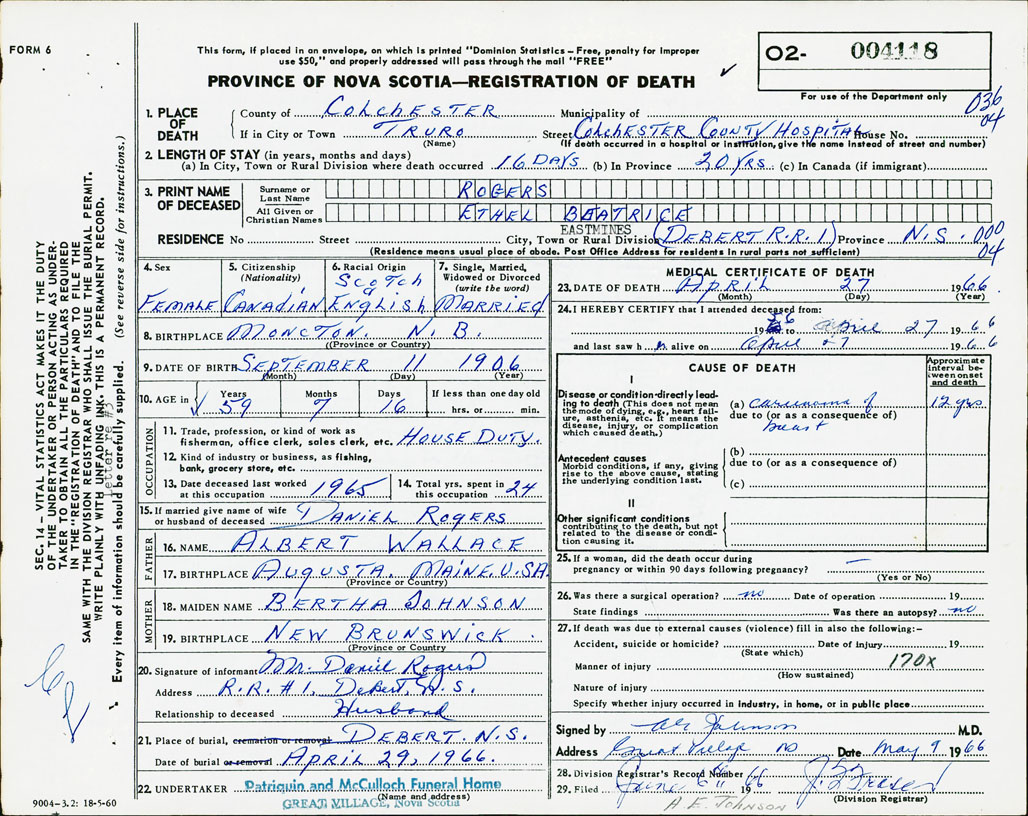 FORM 6
This form, if placed in an envelope, on which is printed "Dominion Statistics – Free, penalty for improper
use $50," and properly addressed will pass through the mail "FREE"
PROVINCE OF NOVA SCOTIA—REGISTRATION OF DEATH
02- 004118
For use of the Department only
036
04
1. PLACE OF DEATH
County of COLCHESTER Municipality of
If in City or Town TRURO Street COLCHESTER COUNTY HOSPITAL House No.
(Name) (If death occurred in a hospital or institution, give the name instead of street and number)
2. LENGTH OF STAY (in years, months and days)
(a) In City, Town or Rural Division where death occurred 16 DAYS (b) In Province 20 YRS. (c) In Canada (if immigrant)
3. PRINT NAME OF DECEASED
Surname or Last Name ROGERS
All Given or Christian Names ETHEL BEATRICE
EASTMINES
RESIDENCE No Street City, Town or Rural Division (DEBERT R.R. 1) Province N.S. 000
04
(Residence means usual place of abode. Post Office Address for residents in rural parts not sufficient)
4. Sex FEMALE
5. Citizenship (Nationality) CANADIAN
6. Racial Origin SCOTCH ENGLISH
7. Single, Married, Widowed or Divorced (write the word) MARRIED
8. BIRTHPLACE MONCTON. N.B.
(Province or Country)
9. DATE OF BIRTH SEPTEMBER 11 1906
(Month) (Day) (Year)
10. AGE in Years 59 Months 7 Days 16 If less than one day old hrs. or min.
OCCUPATION
11. Trade, profession, or kind of work as
fisherman, office clerk, sales clerk, etc. HOUSE DUTY.
12. Kind of industry or business, as fishing,
bank, grocery store, etc.
13. Date deceased last worked at this occupation 1965
14. Total yrs. spent in this occupation 24
15. If married give name of wife
or husband of deceased DANIEL ROGERS
FATHER
16. NAME ALBERT WALLACE
17. BIRTHPLACE AUGUSTA. MAINE. U.S.A
(Province or Country)
MOTHER
18. MAIDEN NAME BERTHA JOHNSON
19. BIRTHPLACE NEW BRUNSWICK.
(Province or Country)
20. Signature of informant Mr. Daniel Rogers
Address R.R.#1, Debert, N.S.
Relationship to deceased Husband
21. Place of burial, cremation or removal DEBERT. N.S.
Date of burial or removal APRIL 29, 1966.
22. UNDERTAKER Patriquin and McCulloch Funeral Home
(Name and address)
GREAT VILLAGE, Nova Scotia
MEDICAL CERTIFICATE OF DEATH
23. DATE OF DEATH APRIL 27 1966
(Month) (Day) (Year)
24. I HEREBY CERTIFY that I attended deceased from:
19 56 to April 27 1966
and last saw h alive on April 27 1966
CAUSE OF DEATH
Approximate interval between onset and death
I
Disease or condition directly leading to death (This does not mean
the mode of dying, e.g., heart failure, asthenia, etc. It means the
disease, injury, or complication
which caused death.)
(a) carcinoma of 12 yrs
due to (or as a consequence of)
breast
Antecedent causes
Morbid conditions, if any, giving
rise to the above cause, stating
the underlying condition last.
(b)
due to (or as a consequence of)
(c)
II
Other significant conditions
contributing to the death, but not
related to the disease or condition causing it.
25. If a woman, did the death occur during
pregnancy or within 90 days following pregnancy? —
(Yes or No)
26. Was there a surgical operation? no Date of operation 19
State findings Was there an autopsy? no
27. If death was due to external causes (violence) fill in also the following:–
Accident, suicide or homicide? Date of injury 19
(State which)
170X
Manner of injury
(How sustained)
Nature of injury
Specify whether injury occurred in industry, in home, or in public place
Signed by Johnson M.D.
Address Great Village NS Date May 9 1966
28. Division Registrar's Record Number
29. Filed June 19 66 Fraser
(Division Registrar)
A E. JOHNSON
SEC. 14 – VITAL STATISTICS ACT MAKES IT THE DUTY
OF THE UNDERTAKER OR PERSON ACTING AS UNDERTAKER TO OBTAIN ALL THE PARTICULARS REQUIRED
IN THE "REGISTRATION OF DEATH" AND TO FILE THE
SAME WITH THE DIVISION REGISTRAR WHO SHALL ISSUE THE BURIAL PERMIT.
WRITE PLAINLY WITH UNFADING INK. THIS IS A PERMANENT RECORD.
Letter re #3
Every item of information should be carefully supplied. (See reverse side for instructions.)
9004–3.2: 18-5-60